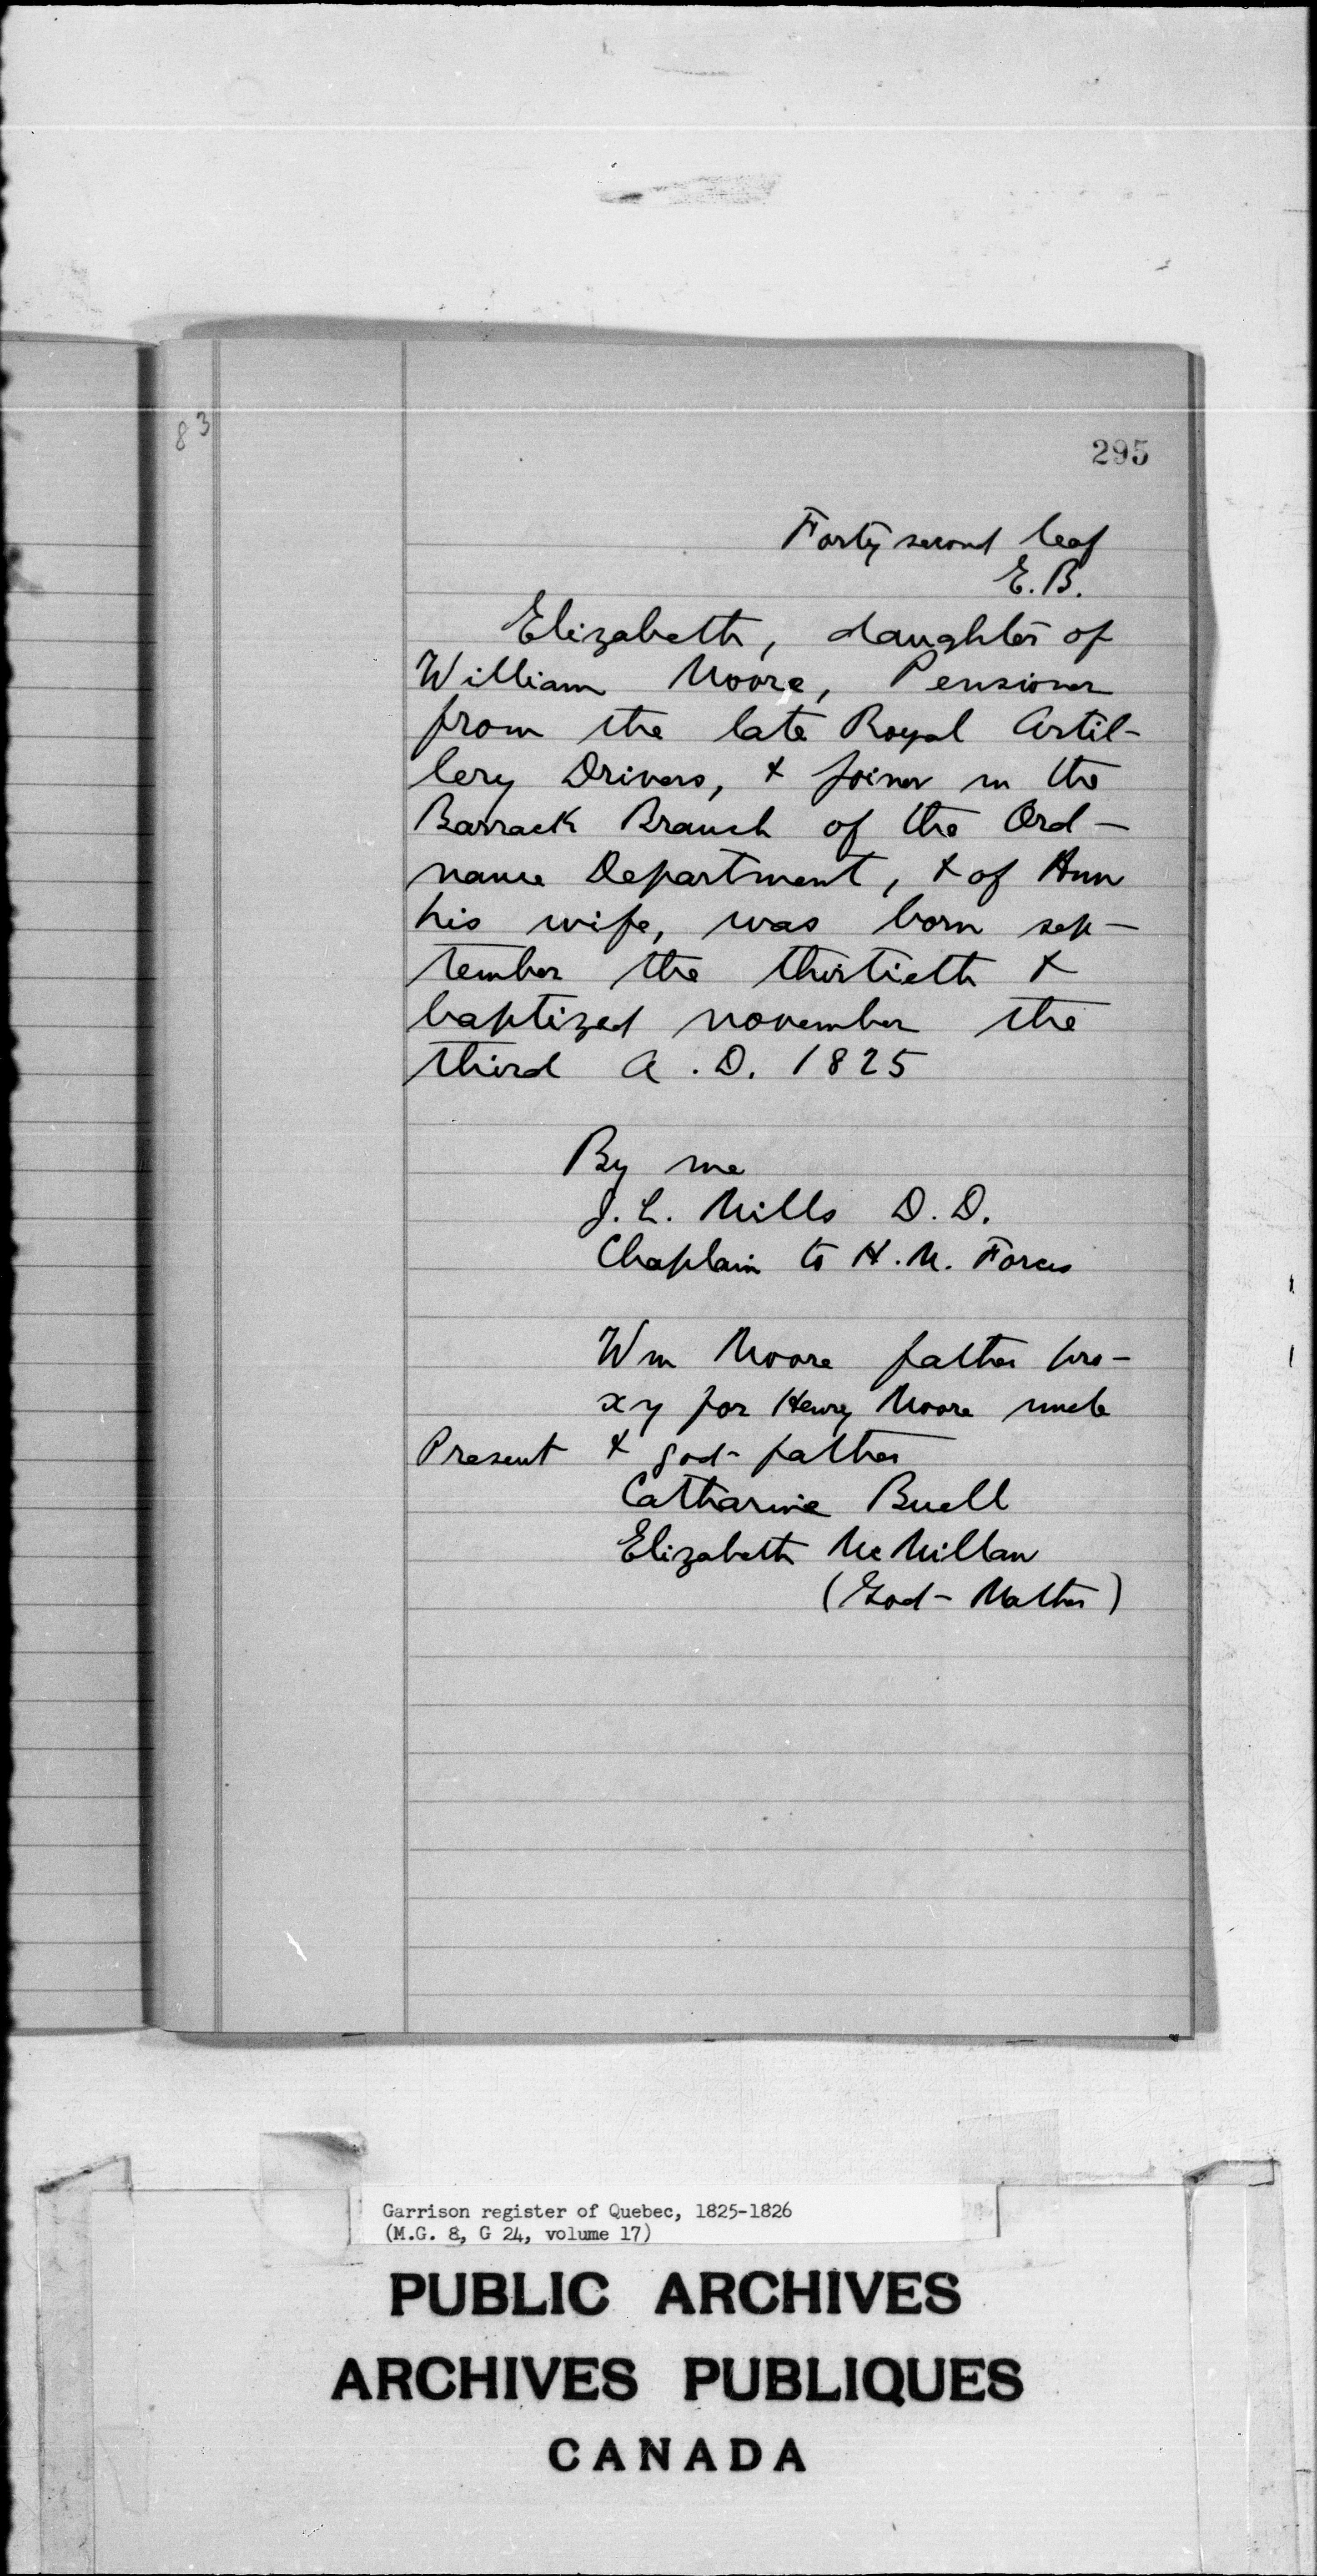 83
295
Forty second leaf
E.B.
Elizabeth, daughter of
William Moore, Pensioner
from the late Royal Artil-
lery Drivers, & joiner in the
Barrack Branch of the Ord-
nance Department, & of Ann
his wife, was born sep-
tember the thirtieth &
baptized november the
third A.D. 1825
By me
J.L. Mills D.D.
Chaplain to H.M. Forces
Wm Moore father pro-
xy for Henry Moore uncle
Present & god-father
Catharine Buell
Elizabeth McMillan
(God-Mother)
Garrison register of Quebec, 1825-1826
(M.G. 8, G 24, volume 17)
PUBLIC ARCHIVES
ARCHIVES PUBLIQUES
CANADA